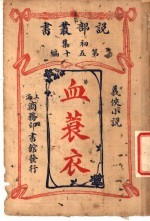 說部叢書
初集
第五十編
義俠小說
血蓑衣
上海商務印書館發行